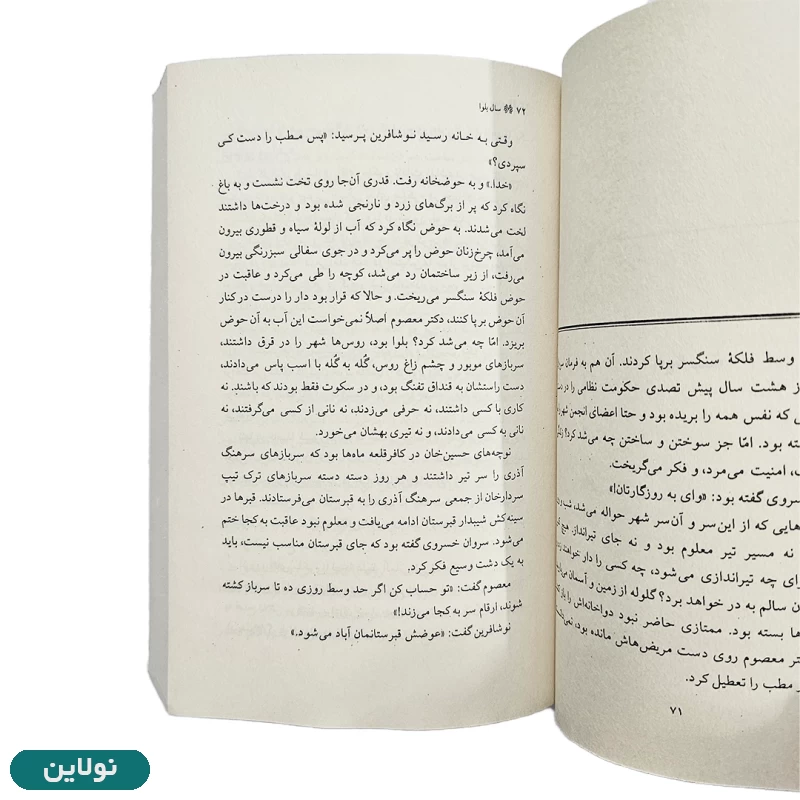 وسط فلکهٔ سنگسر برپا کردند. آن هم به فرمان
هشت سال پیش تصدی حکومت نظامی را در
که نفس همه را بریده بود و حتا اعضای انجمن
بود. امّا جز سوختن و ساختن چه می‌شد کرد؟
امنیت می‌مرد، و فکر می‌گریخت.
گفته بود: «وای به روزگارتان!»
که از این‌سر و آن‌سر شهر حواله می‌شد،
نه مسیر تیر معلوم بود و نه جای تیرانداز. هیچ
چه تیراندازی می‌شود، چه کسی را دار خواهند
سالم به در خواهد برد؟ گلوله از زمین و آسمان
بسته بود. ممتازی حاضر نبود دواخانه‌اش را باز
معصوم روی دست مریض‌هاش مانده بود،
مطب را تعطیل کرد.
۷۱
۷۲ سال بلوا
وقتی به خانه رسید نوشافرین پرسید: «پس مطب را دست کی
سپردی؟»
«خدا.» و به حوضخانه رفت. قدری آن‌جا روی تخت نشست و به باغ
نگاه کرد که پر از برگ‌های زرد و نارنجی شده بود و درخت‌ها داشتند
لخت می‌شدند. به حوض نگاه کرد که آب از لولهٔ سیاه و قطوری بیرون
می‌آمد، چرخ‌زنان حوض را پر می‌کرد و در جوی سفالی سبزرنگی بیرون
می‌رفت، از زیر ساختمان رد می‌شد، کوچه را طی می‌کرد و عاقبت در
حوض فلکهٔ سنگسر می‌ریخت. و حالا که قرار بود دار را درست در کنار
آن حوض برپا کنند، دکتر معصوم اصلاً نمی‌خواست این آب به آن حوض
بریزد. امّا چه می‌شد کرد؟ بلوا بود، روس‌ها شهر را در قرق داشتند،
سربازهای موبور و چشم زاغ روس، گُله به گُله با اسب پاس می‌دادند،
دست راستشان به قنداق تفنگ بود، و در سکوت فقط بودند که باشند. نه
کاری با کسی داشتند، نه حرفی می‌زدند، نه نانی از کسی می‌گرفتند، نه
نانی به کسی می‌دادند، و نه تیری بهشان می‌خورد.
نوچه‌های حسین‌خان در کافرقلعه ماه‌ها بود که سربازهای سرهنگ
آذری را سر تیر داشتند و هر روز دسته دسته سربازهای ترک تیپ
سردارخان از جمعی سرهنگ آذری را به قبرستان می‌فرستادند. قبرها در
سینه‌کش شیبدار قبرستان ادامه می‌یافت و معلوم نبود عاقبت به کجا ختم
می‌شود. سروان خسروی گفته بود که جای قبرستان مناسب نیست، باید
به یک دشت وسیع فکر کرد.
معصوم گفت: «تو حساب کن اگر حد وسط روزی ده تا سرباز کشته
شوند، ارقام سر به کجا می‌زند!»
نوشافرین گفت: «عوضش قبرستانمان آباد می‌شود.»
نولاین